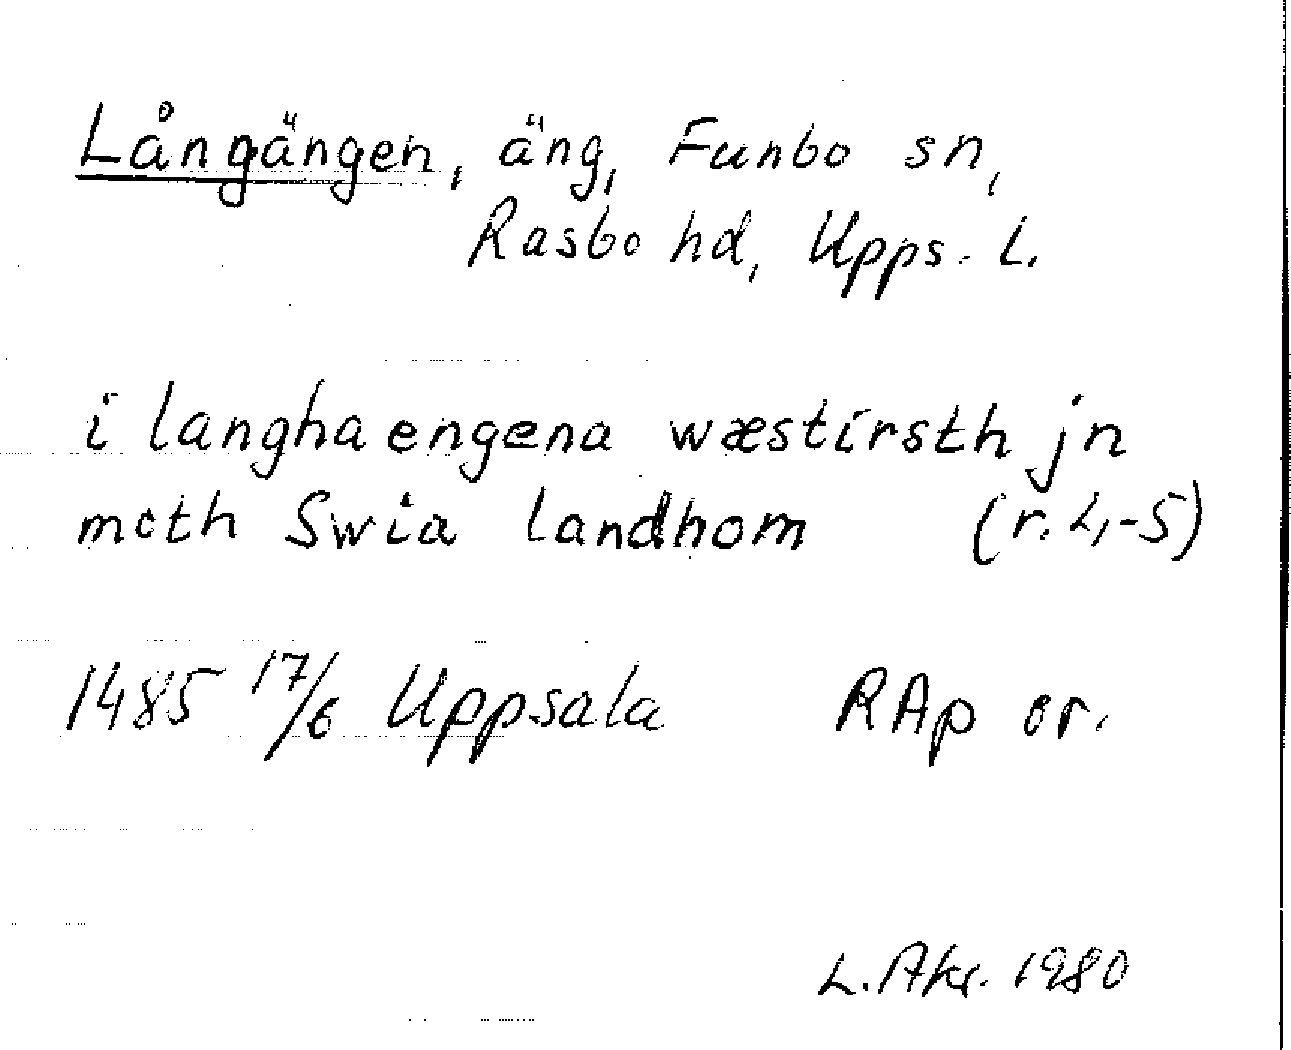 Långängen, äng, Funbo sn,
Rasbo hd, Upps. L.
i langha engena wæstirsth jn
moth Swia landhom (r. 4-5)
1485 17/6 Uppsala RAp or.
L. Akr. 1980